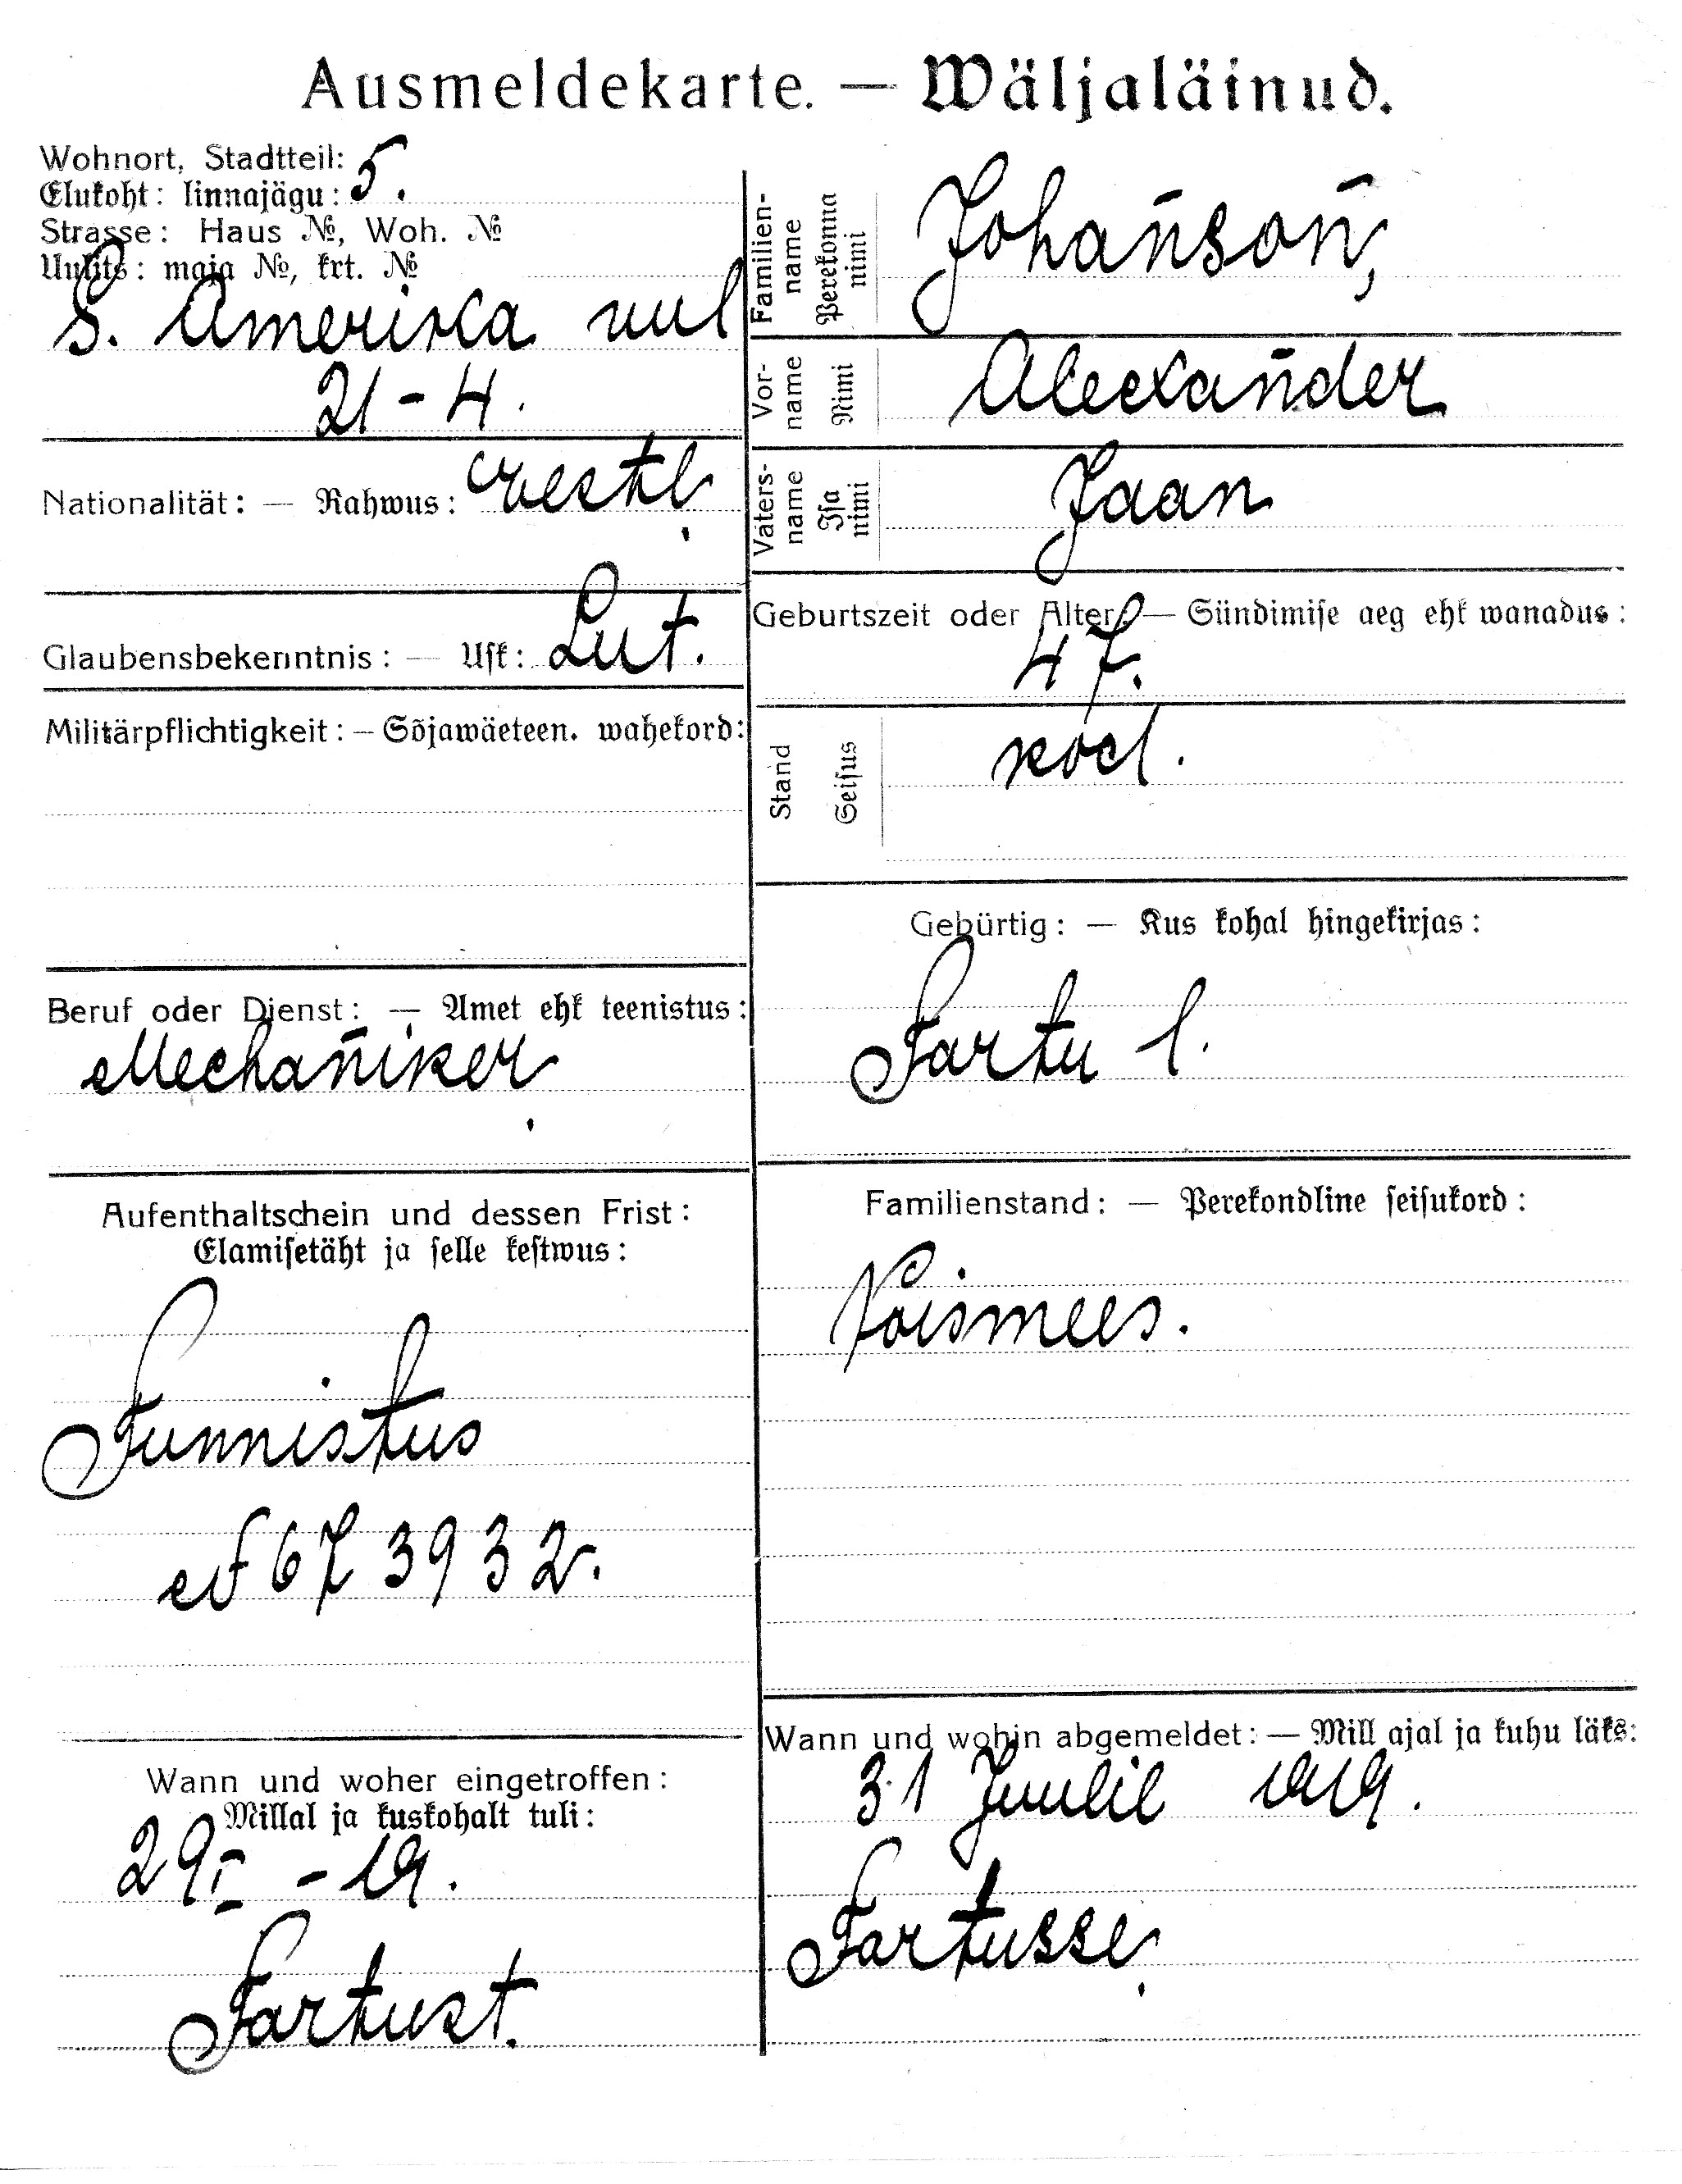 Ausmeldekarte. — Wäljaläinud.
Wohnort, Stadtteil: 5.
Elukoht: linnajägu:
Strasse: Haus №, Woh. №
Uulits: maja №, krt. №
S. Amerika uul
21 - 4.
Nationalität: — Rahwus: eestl.
Glaubensbekenntnis: — Usk: Lut.
Militärpflichtigkeit: — Sõjawäeteen. wahekord:
Beruf oder Dienst: — Amet ehk teenistus:
Mechaniker.
Aufenthaltschein und dessen Frist:
Elamisetäht ja selle kestwus:
Tunnistus
№ 67 3932.
Wann und woher eingetroffen:
Millal ja kuskohalt tuli:
29 I - 19.
Tartust.
Familienname
Perekonna nimi
Johanson,
Vorname
Nimi
Alecxander
Vatersname
Isa nimi
Jaan
Geburtszeit oder Alter: — Sündimise aeg ehk wanadus:
47.
Stand
Seisus
Gebürtig: — Kus kohal hingekirjas:
Tartu l.
Familienstand: — Perekondline seisukord:
Noismees.
Wann und wohin abgemeldet: — Mill ajal ja kuhu läks:
31 Juulil 1919.
Tartusse.